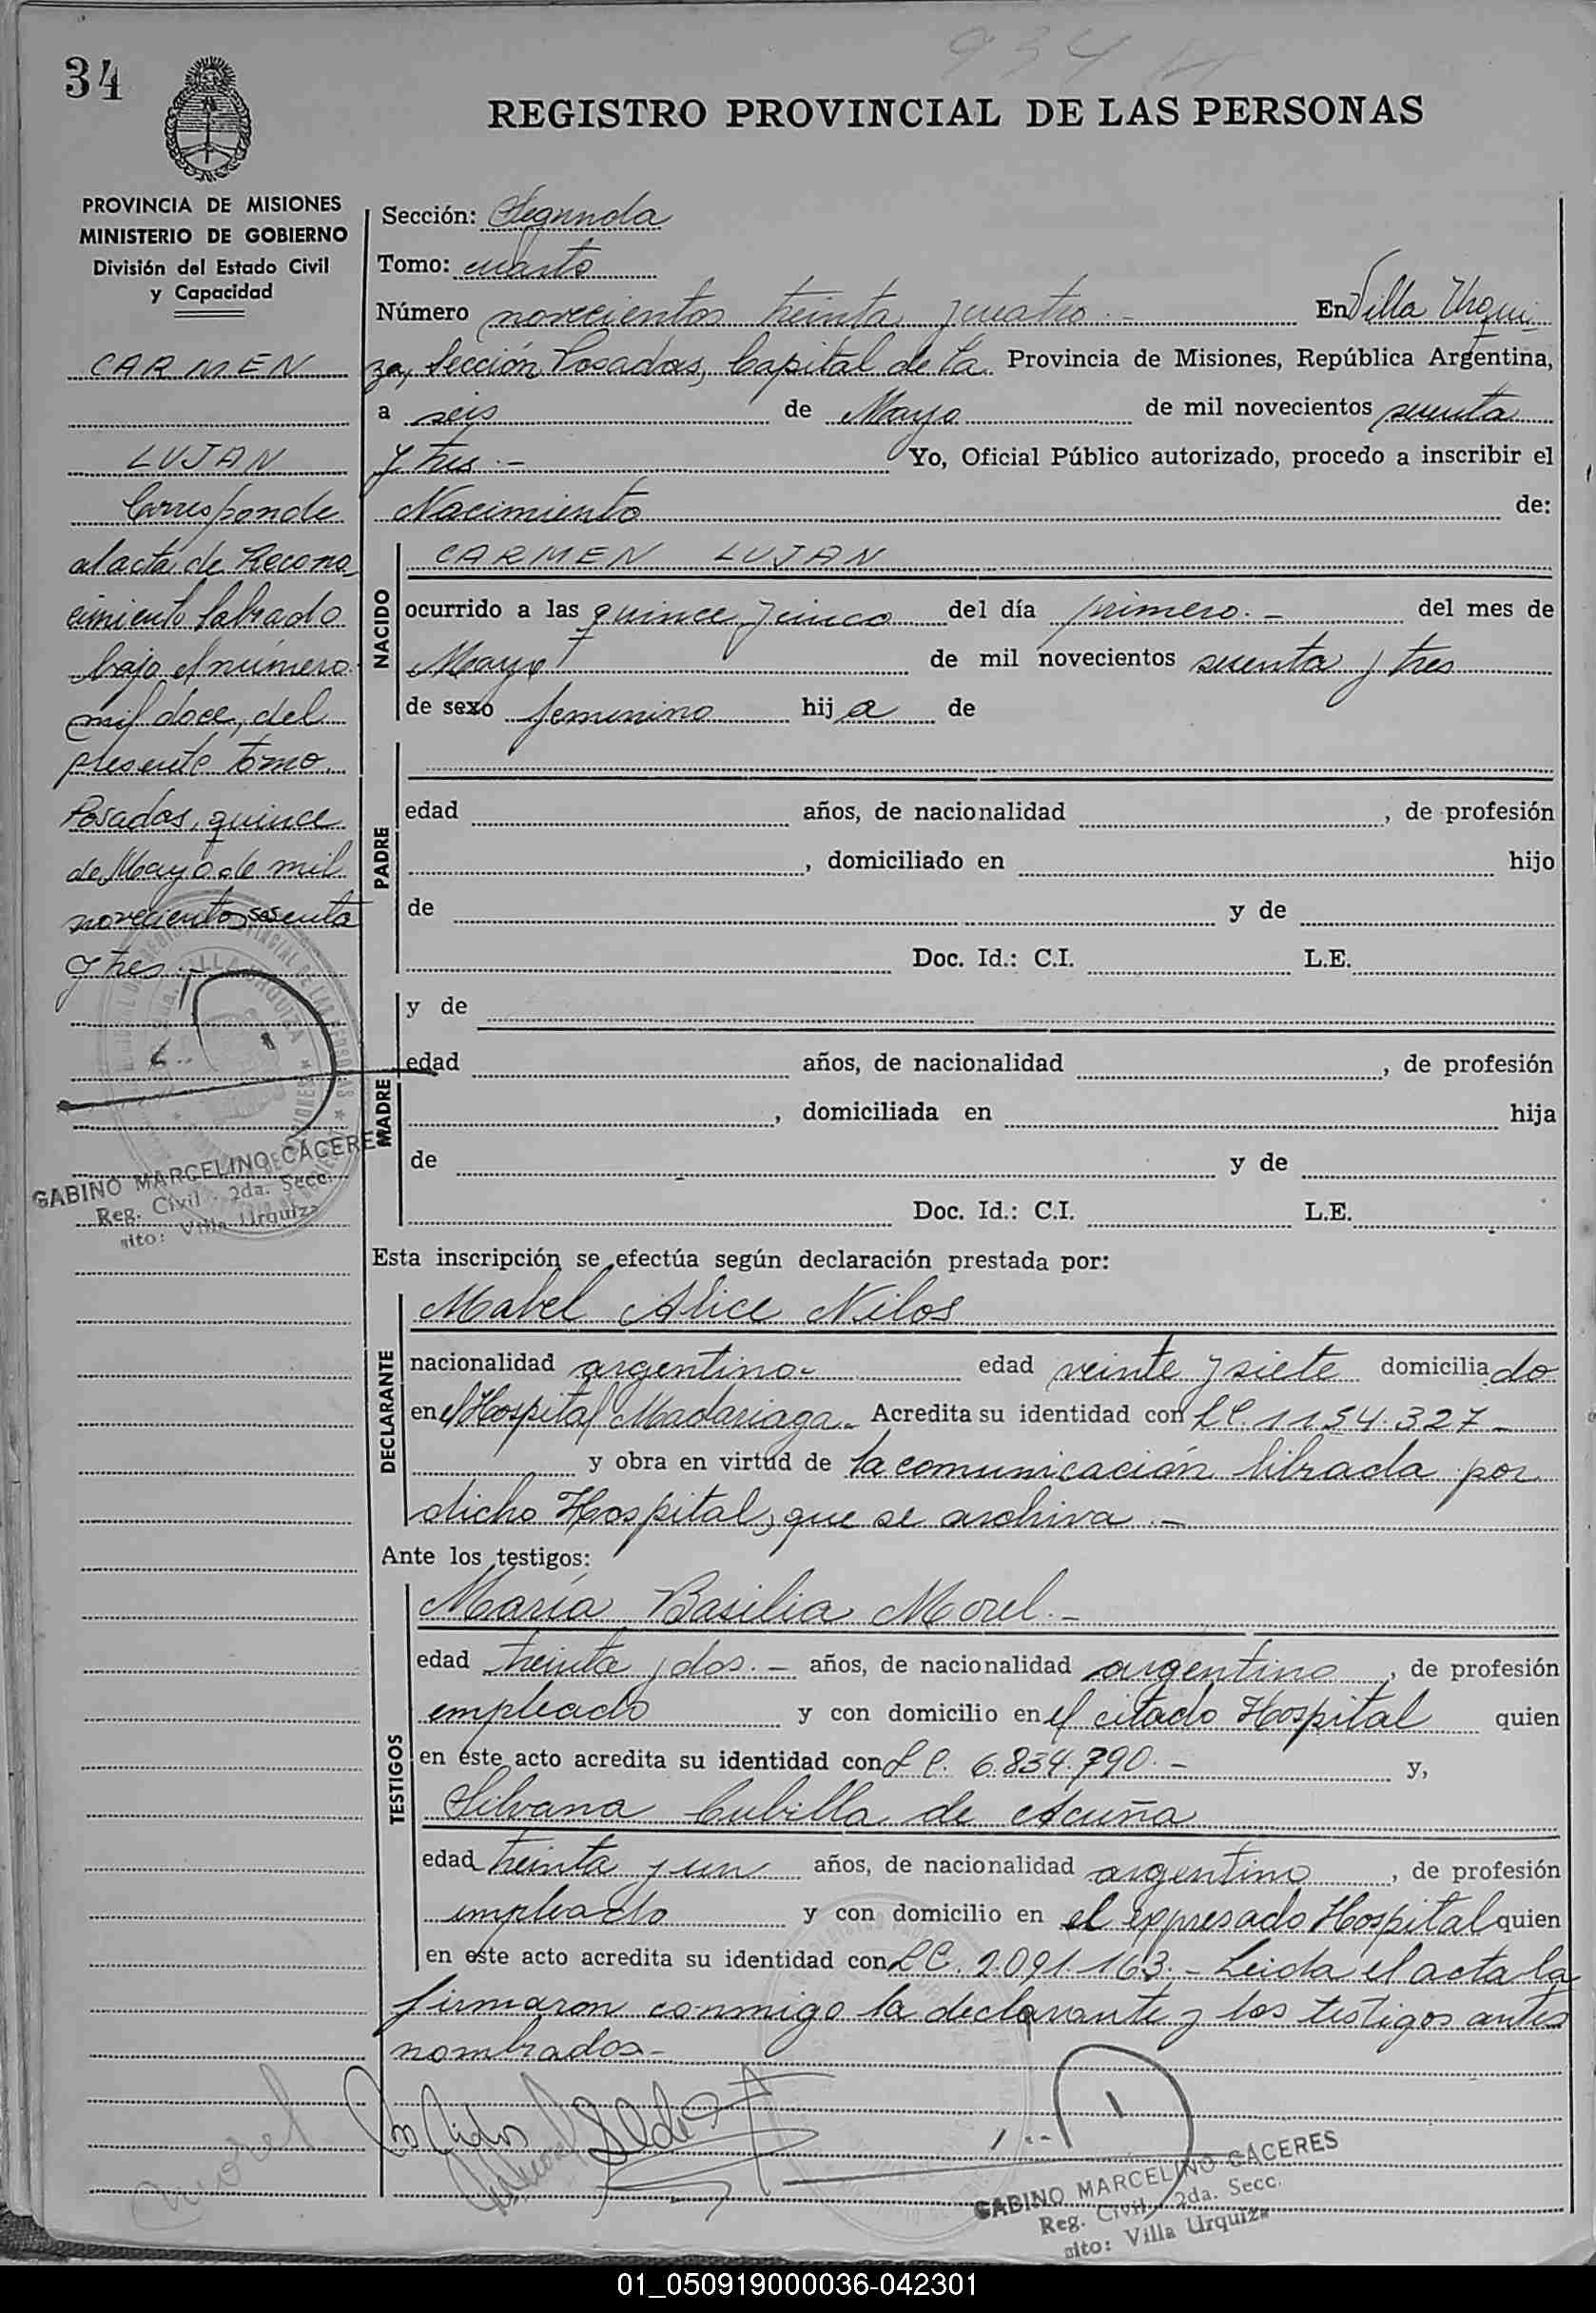 34
REGISTRO PROVINCIAL DE LAS PERSONAS
PROVINCIA DE MISIONES
MINISTERIO DE GOBIERNO
División del Estado Civil
y Capacidad
CARMEN
LUJAN
Corresponde
al acta de Recono-
cimiento labrado
bajo el número
mil doce, del
presente tomo.
Posadas, quince
de Mayo de mil
novecientos sesenta
y tres.-
GABINO MARCELINO CACERE
Reg. Civil - 2da. Secc.
sito: Villa Urquiza
Sección: Segunda
Tomo: cuarto
Número novecientos treinta y cuatro.- En Villa Urqui-
za, Sección Posadas, Capital de la Provincia de Misiones, República Argentina,
a seis de Mayo de mil novecientos sesenta
y tres.- Yo, Oficial Público autorizado, procedo a inscribir el
Nacimiento de:
NACIDO
CARMEN LUJAN
ocurrido a las quince y cinco del día primero.- del mes de
Mayo de mil novecientos sesenta y tres
de sexo femenino hija de
PADRE
edad años, de nacionalidad , de profesión
, domiciliado en hijo
de y de
Doc. Id.: C.I. L.E.
MADRE
y de
edad años, de nacionalidad , de profesión
, domiciliada en hija
de y de
Doc. Id.: C.I. L.E.
Esta inscripción se efectúa según declaración prestada por:
DECLARANTE
Mabel Alice Nilos
nacionalidad argentina.- edad veinte y siete domiciliado
en el Hospital Madariaga.- Acredita su identidad con L.C. 1154.327.-
y obra en virtud de la comunicación librada por
dicho Hospital, que se archiva.-
Ante los testigos:
TESTIGOS
María Basilia Morel.-
edad treinta y dos.- años, de nacionalidad argentino , de profesión
empleado y con domicilio en el citado Hospital quien
en este acto acredita su identidad con L.C. 6.834.790.- y,
Silvana Cubilla de Acuña
edad treinta y un años, de nacionalidad argentino , de profesión
empleado y con domicilio en el expresado Hospital quien
en este acto acredita su identidad con L.C. 2.091.163.- Leida el acta la
firmaron conmigo la declarante y los testigos antes
nombrados.-
Morel
GABINO MARCELINO CACERES
Reg. Civil - 2da. Secc.
sito: Villa Urquiza
01_050919000036-042301